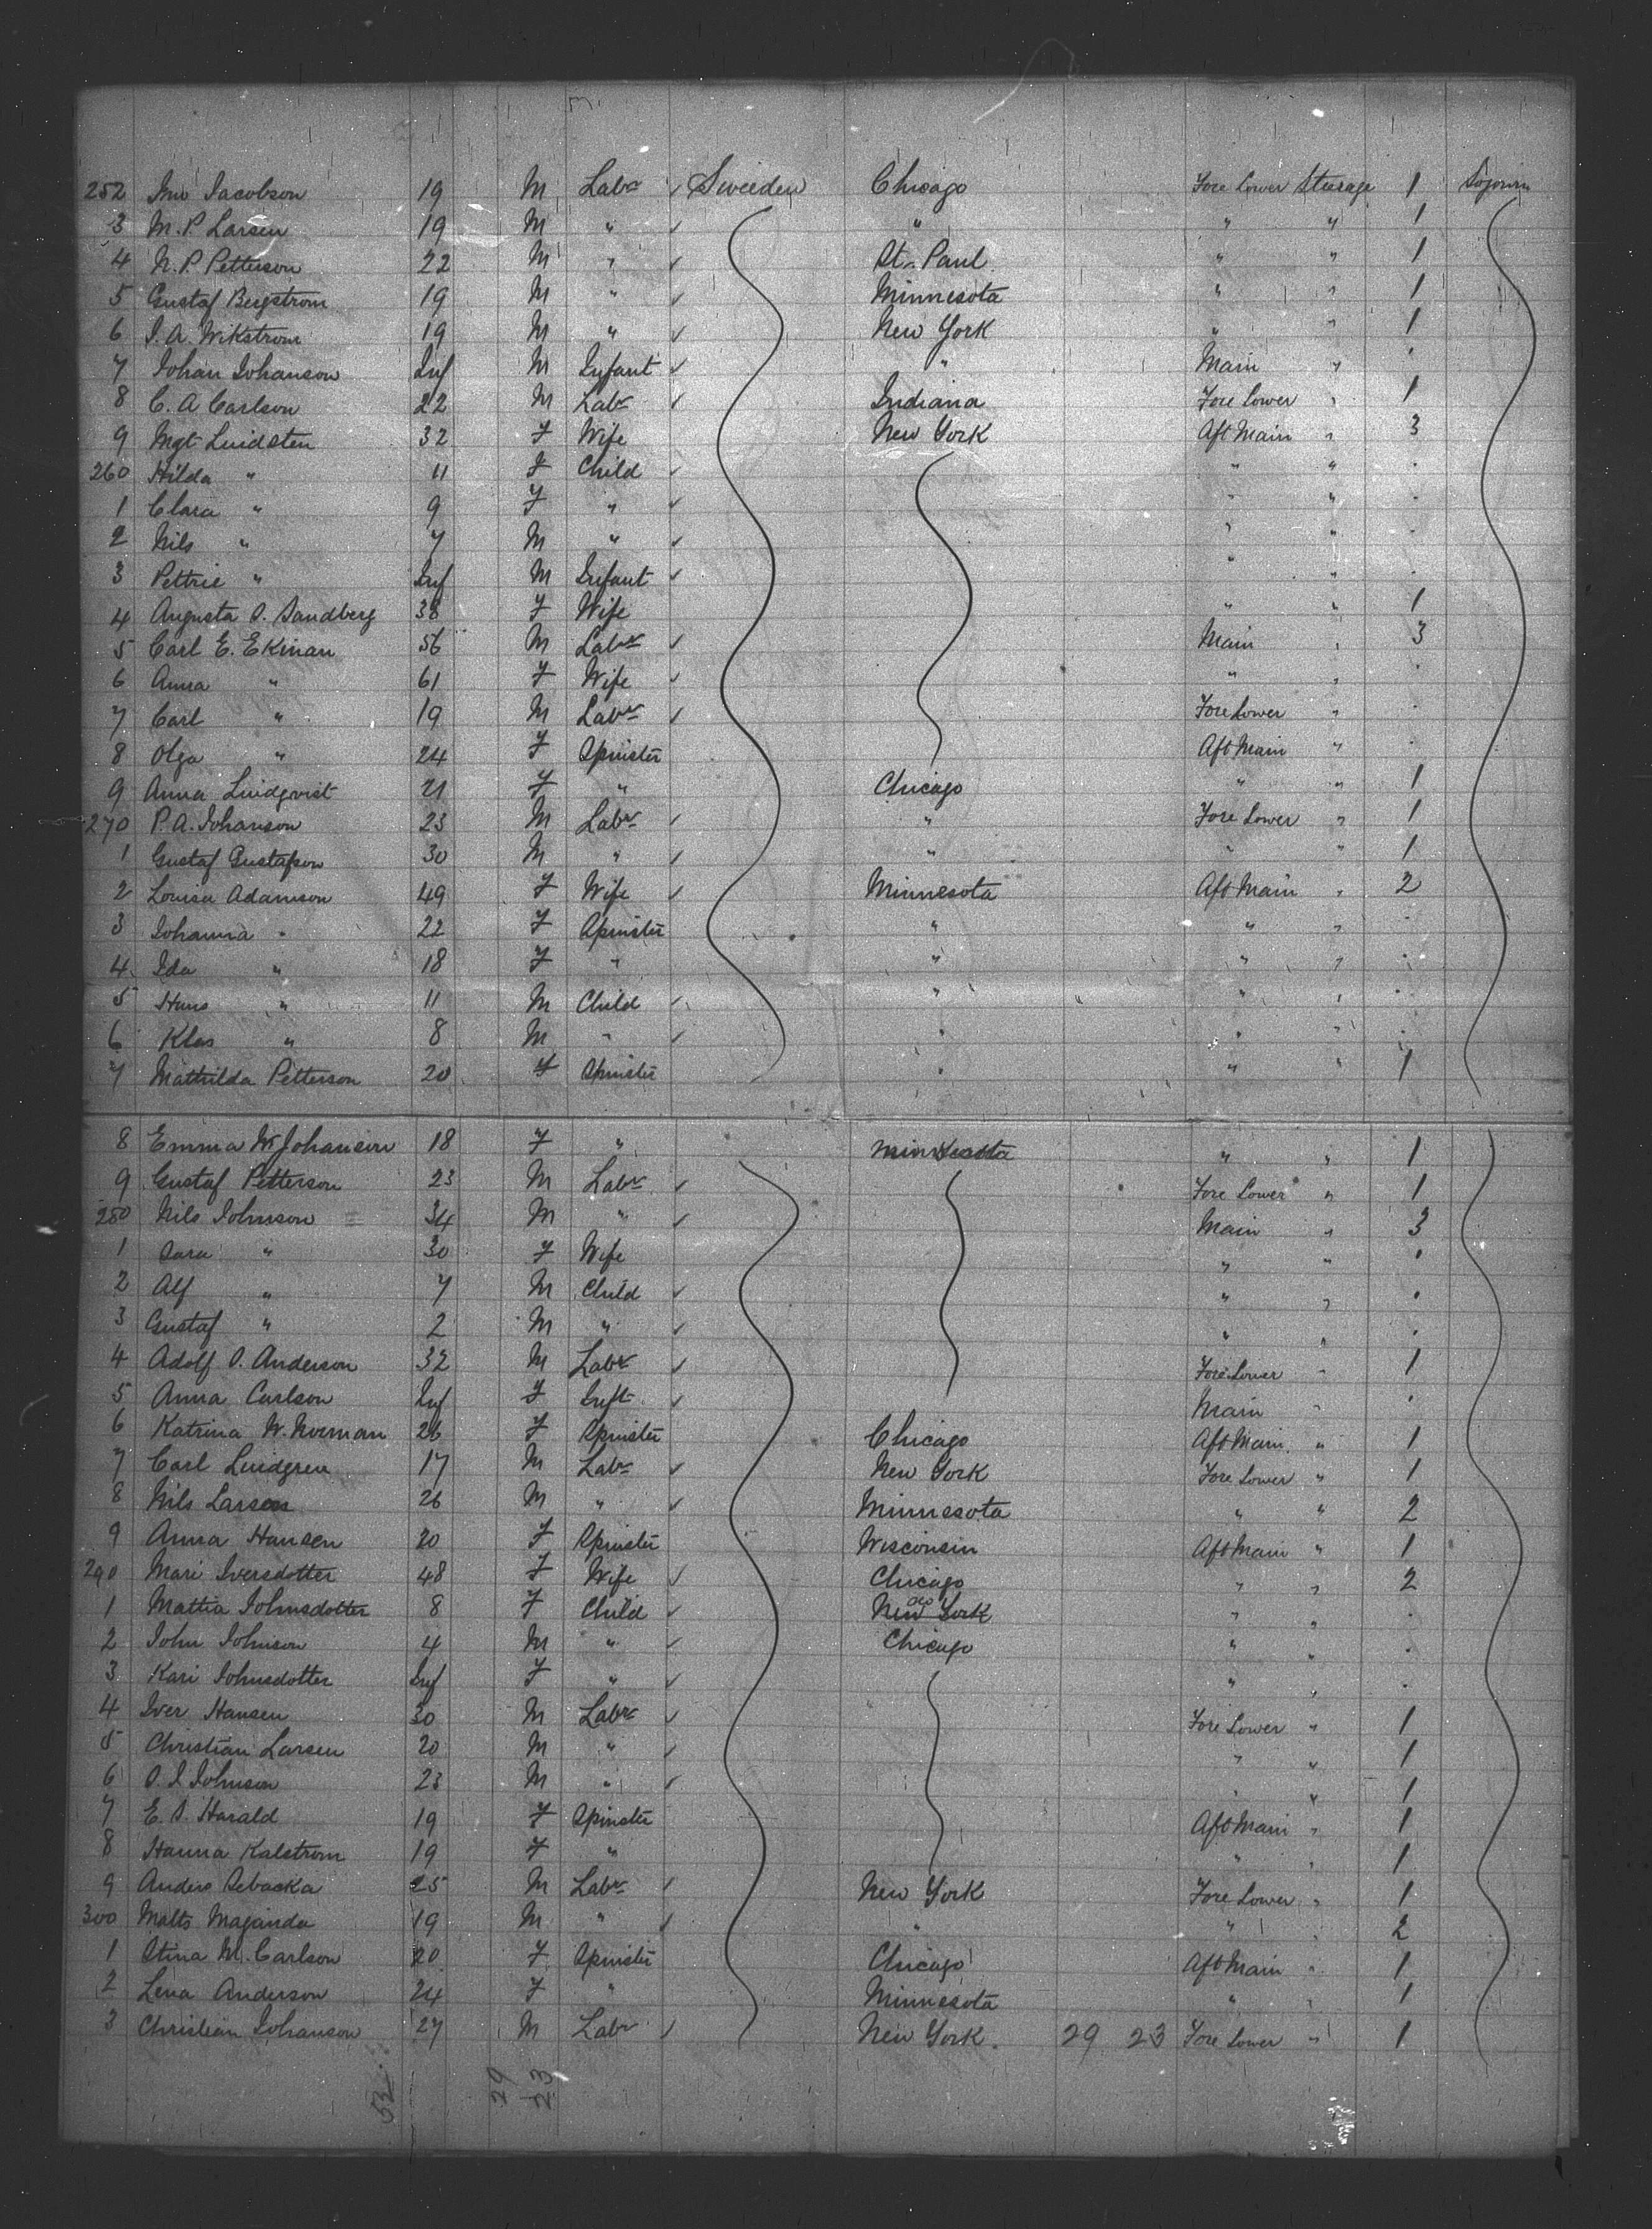 252 Jno Jacobson 19 M Labr ✓ Sweeden Chicago Fore Lower Steerage 1 Sojourn
3 M. P. Larsen 19 M " ✓ " " " 1
4 N. P. Petterson 22 M " ✓ St. Paul " " 1
5 Gustaf Bergstrom 19 M " ✓ Minnesota " " 1
6 J. A. Wikstrom 19 M " ✓ New York " " 1
7 Johan Johanson Inf M Infant ✓ " Main "
8 C. A Carlson 22 M Labr ✓ Indiana Fore Lower " 1
9 Mgt Lindsten 32 F Wife New York Aft Main " 3
260 Hilda " 11 F Child ✓ " "
1 Clara " 9 F " ✓ " "
2 Nils " 7 M " ✓ " "
3 Pettrie " Inf M Infant ✓ " "
4 Augusta S. Sandberg 38 F Wife " " 1
5 Carl E. Ekman 56 M Labr ✓ Main " 3
6 Anna " 61 F Wife ✓ " "
7 Carl " 19 M Labr ✓ Fore Lower "
8 Olga " 24 F Spinster Aft Main "
9 Anna Lindqvist 21 F " Chicago " " 1
270 P. A. Johanson 23 M Labr ✓ " Fore Lower " 1
1 Gustaf Gustafson 30 M " ✓ " " " 1
2 Louisa Adamson 49 F Wife ✓ Minnesota Aft Main " 2
3 Johanna " 22 F Spinster " " "
4 Ida " 18 F " " " "
5 Hans " 11 M Child ✓ " " "
6 Klas " 8 M " ✓ " " "
7 Mathilda Petterson 20 F Spinster " " " 1
8 Emma W Johanson 18 F " Minnesota " " 1
9 Gustaf Petterson 23 M Labr ✓ Fore Lower " 1
280 Nils Johnson 34 M " ✓ Main " 3
1 Sara " 30 F Wife " "
2 Alf " 7 M Child ✓ " "
3 Gustaf " 2 M " ✓ " "
4 Adolf S. Anderson 32 M Labr ✓ Fore Lower " 1
5 Anna Carlson Inf F Inft ✓ Main "
6 Katrina W. Norman 26 F Spinster Chicago Aft Main " 1
7 Carl Lindgren 17 M Labr ✓ New York Fore Lower " 1
8 Nils Larsen 26 M " ✓ Minnesota " " 2
9 Anna Hansen 20 F Spinster Wisconsin Aft Main " 1
290 Mari Iversdotter 48 F Wife ✓ Chicago " " 2
1 Mattia Johnsdotter 8 F Child ✓ do New York " "
2 John Johnson 4 M " ✓ Chicago " "
3 Kari Johnsdotter Inf F " ✓ " "
4 Iver Hansen 30 M Labr ✓ Fore Lower " 1
5 Christian Larsen 20 M " ✓ " " 1
6 O. I Johnson 23 M " ✓ " " 1
7 E. S. Harald 19 F Spinster Aft Main " 1
8 Hanna Kalstrom 19 F " " " 1
9 Anders 25 M Labr ✓ New York Fore Lower " 1
300 Malts 19 M " ✓ " " " 2
1 Stina M. Carlson 20 F Spinster Chicago Aft Main " 1
2 Lena Anderson 24 F " Minnesota " " 1
3 Christian Johanson 27 M Labr ✓ New York. 29 23 Fore Lower " 1
52 29 23